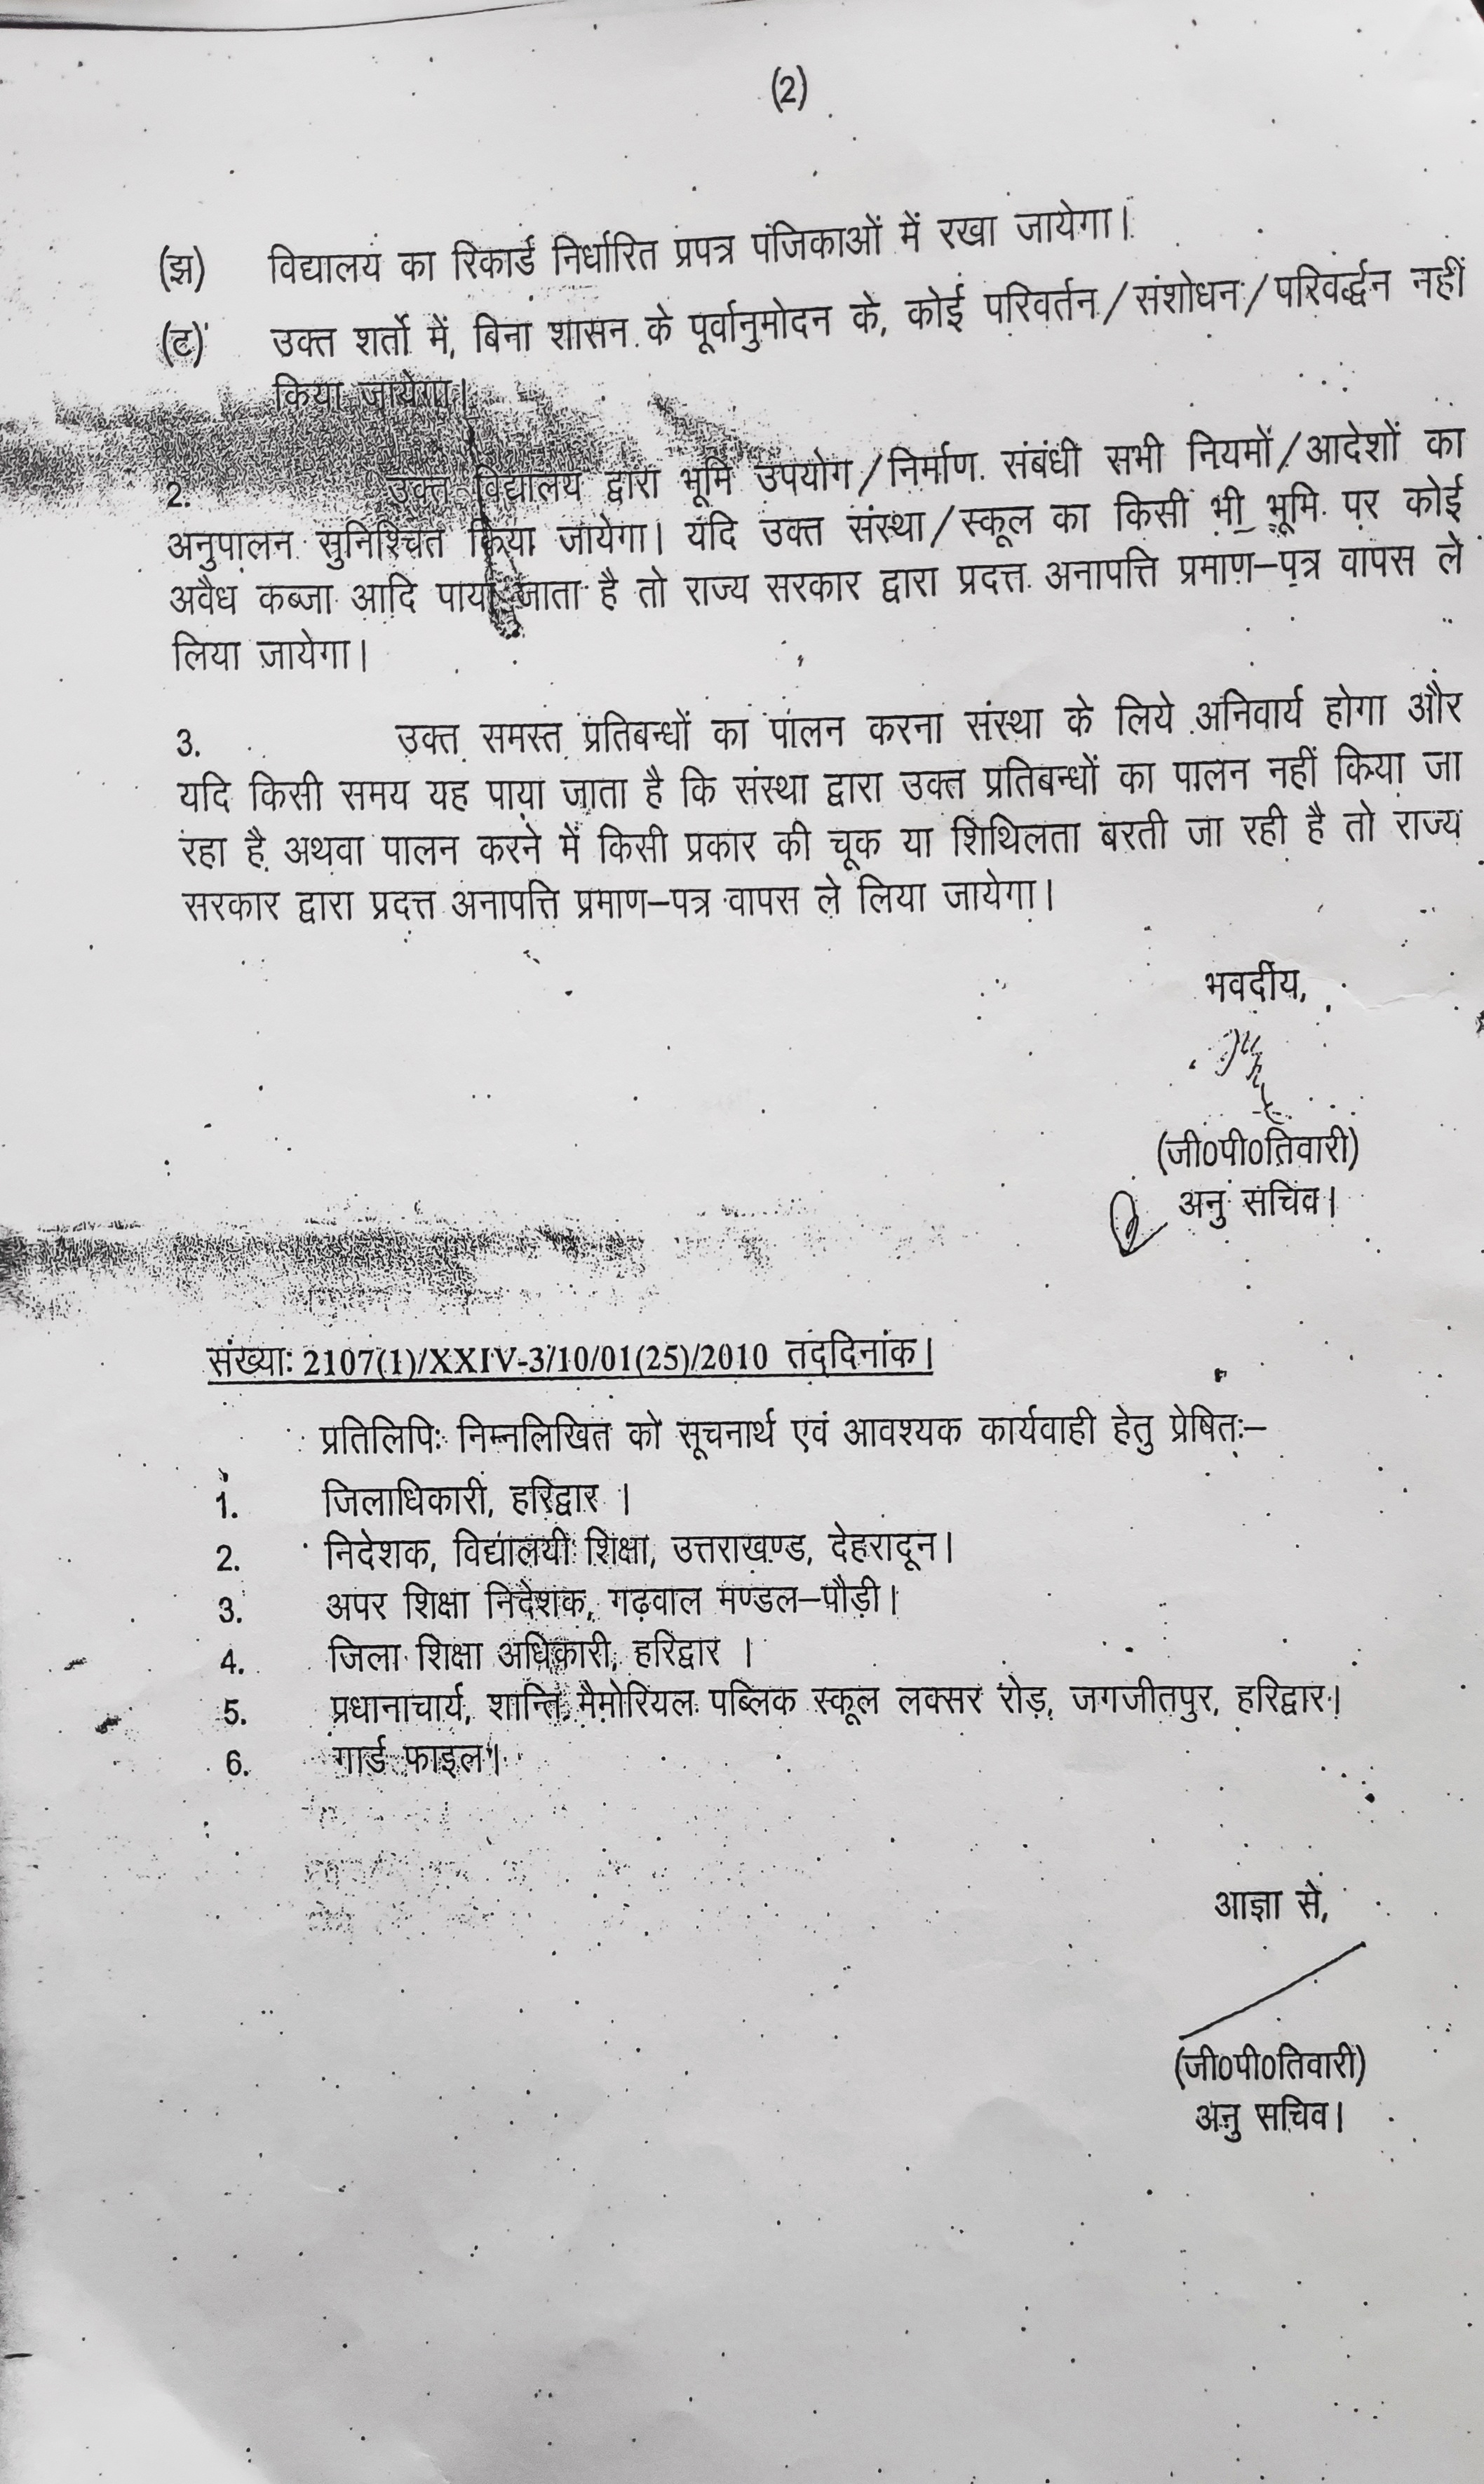 (2)
(झ) विद्यालय का रिकार्ड निर्धारित प्रपत्र पंजिकाओं में रखा जायेगा।
(ट) उक्त शर्तो में, बिना शासन के पूर्वानुमोदन के, कोई परिवर्तन/संशोधन/परिवर्द्धन नहीं
किया जायेगा।
2. उक्त विद्यालय द्वारा भूमि उपयोग/निर्माण संबंधी सभी नियमों/आदेशों का
अनुपालन सुनिश्चित किया जायेगा। यदि उक्त संस्था/स्कूल का किसी भी भूमि पर कोई
अवैध कब्जा आदि पाया जाता है तो राज्य सरकार द्वारा प्रदत्त अनापत्ति प्रमाण–पत्र वापस ले
लिया जायेगा।
3. उक्त समस्त प्रतिबन्धों का पालन करना संस्था के लिये अनिवार्य होगा और
यदि किसी समय यह पाया जाता है कि संस्था द्वारा उक्त प्रतिबन्धों का पालन नहीं किया जा
रहा है अथवा पालन करने में किसी प्रकार की चूक या शिथिलता बरती जा रही है तो राज्य
सरकार द्वारा प्रदत्त अनापत्ति प्रमाण–पत्र वापस ले लिया जायेगा।
भवदीय,
(जी0पी0तिवारी)
अनु सचिव।
संख्याः 2107(1)/XXIV-3/10/01(25)/2010 तद्दिनांक।
प्रतिलिपिः निम्नलिखित को सूचनार्थ एवं आवश्यक कार्यवाही हेतु प्रेषितः–
1. जिलाधिकारी, हरिद्वार ।
2. निदेशक, विद्यालयी शिक्षा, उत्तराखण्ड, देहरादून।
3. अपर शिक्षा निदेशक, गढ़वाल मण्डल–पौड़ी।
4. जिला शिक्षा अधिकारी, हरिद्वार ।
5. प्रधानाचार्य, शान्ति मैमोरियल पब्लिक स्कूल लक्सर रोड़, जगजीतपुर, हरिद्वार।
6. गार्ड फाइल।
आज्ञा से,
(जी0पी0तिवारी)
अनु सचिव।